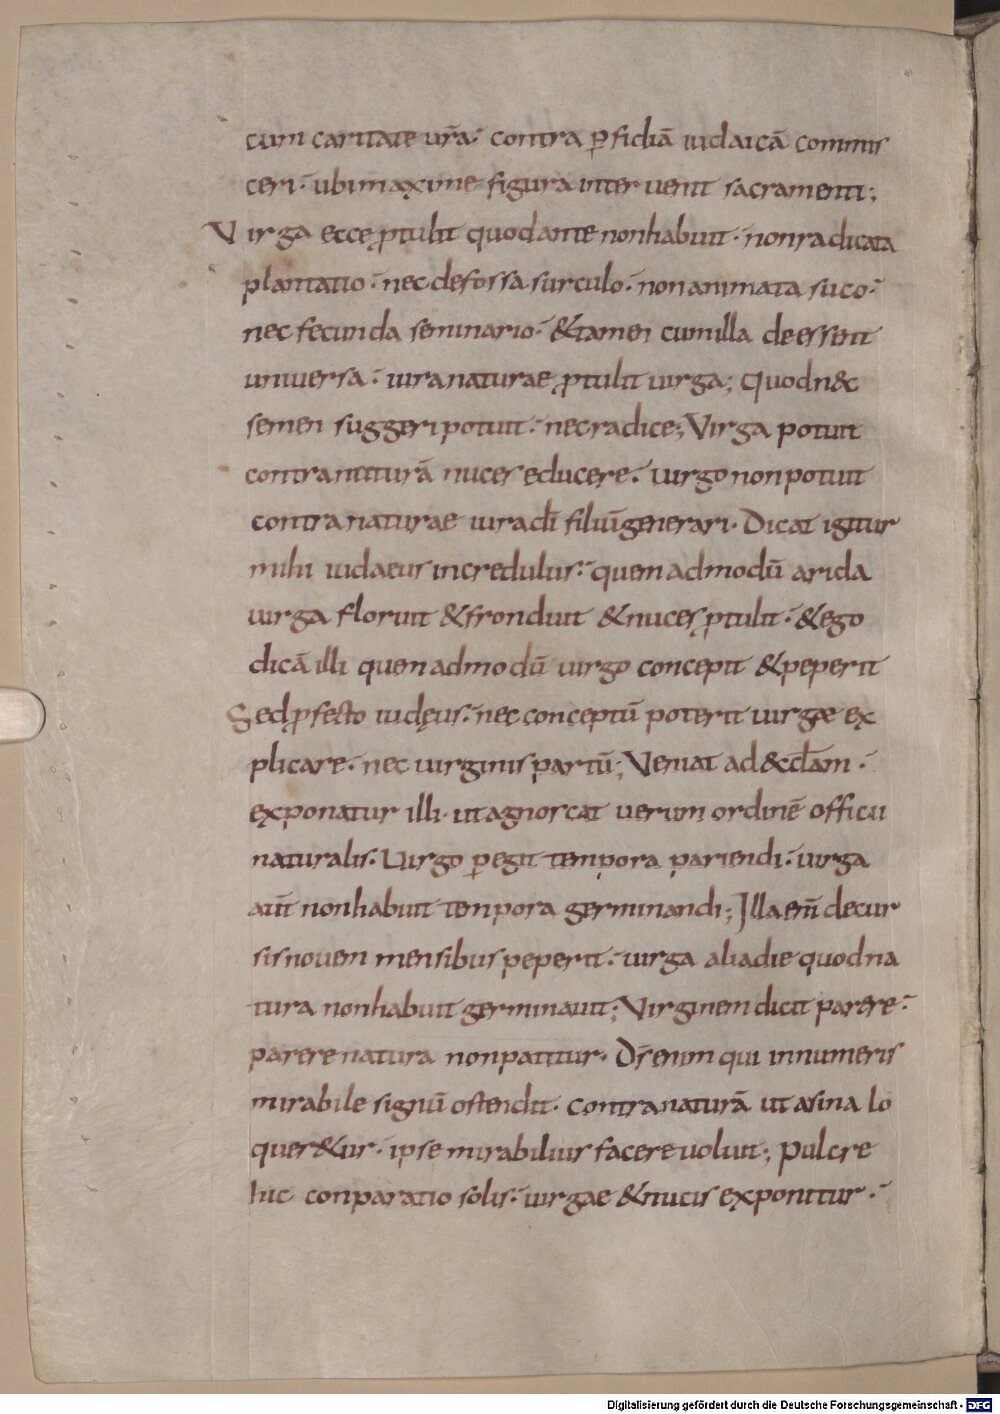 cum caritate ur̄a· contra ꝑfidiā iudaicā commis
ceri· ubi maxime figura interuenit sacramenti;
Virga ecce ꝓtulit quod ante non habuit· non radicata
plantatio· nec defossa surculo· non animata suco·
nec fecunda seminario· &tamen cum illa deessent
uniuersa· iura naturae ꝓtulit uirga; Quod n&c
semen suggeri potuit· nec radice; Virga potuit
contra naturā nuces educere· uirgo non potuit
contra naturae iura dī filiū generari· Dicat igitur
mihi iudaeus incredulus· quem ad modū arida
uirga floruit &fronduit &nuces ꝓtulit· &ego
dicā illi quem ad modū uirgo concepit &peperit
Sed ꝓfecto iudęus· nec conceptū poterit uirgæ ex
plicare· nec uirginis partū; Veniat ad &cclam·
exponatur illi· ut agnoscat uerum ordinē officii
naturalis· Uirgo ꝑegit tempora pariendi· uirga
aūt non habuit tempora germinandi; Illa enī decur
sis nouem mensibus peperit· uirga alia die quod na
tura non habuit germinauit; Virginem dicit parere·
parere natura non patitur· Ds̄ enim qui innumeris
mirabile signū ostendit· contra naturā ut asina lo
quer&ur· ipse mirabilius facere uoluit; Pulcre
huc conparatio solis· uirgae &nucis exponitur·
Digitalisierung gefördert durch die Deutsche Forschungsgemeinschaft - DFG